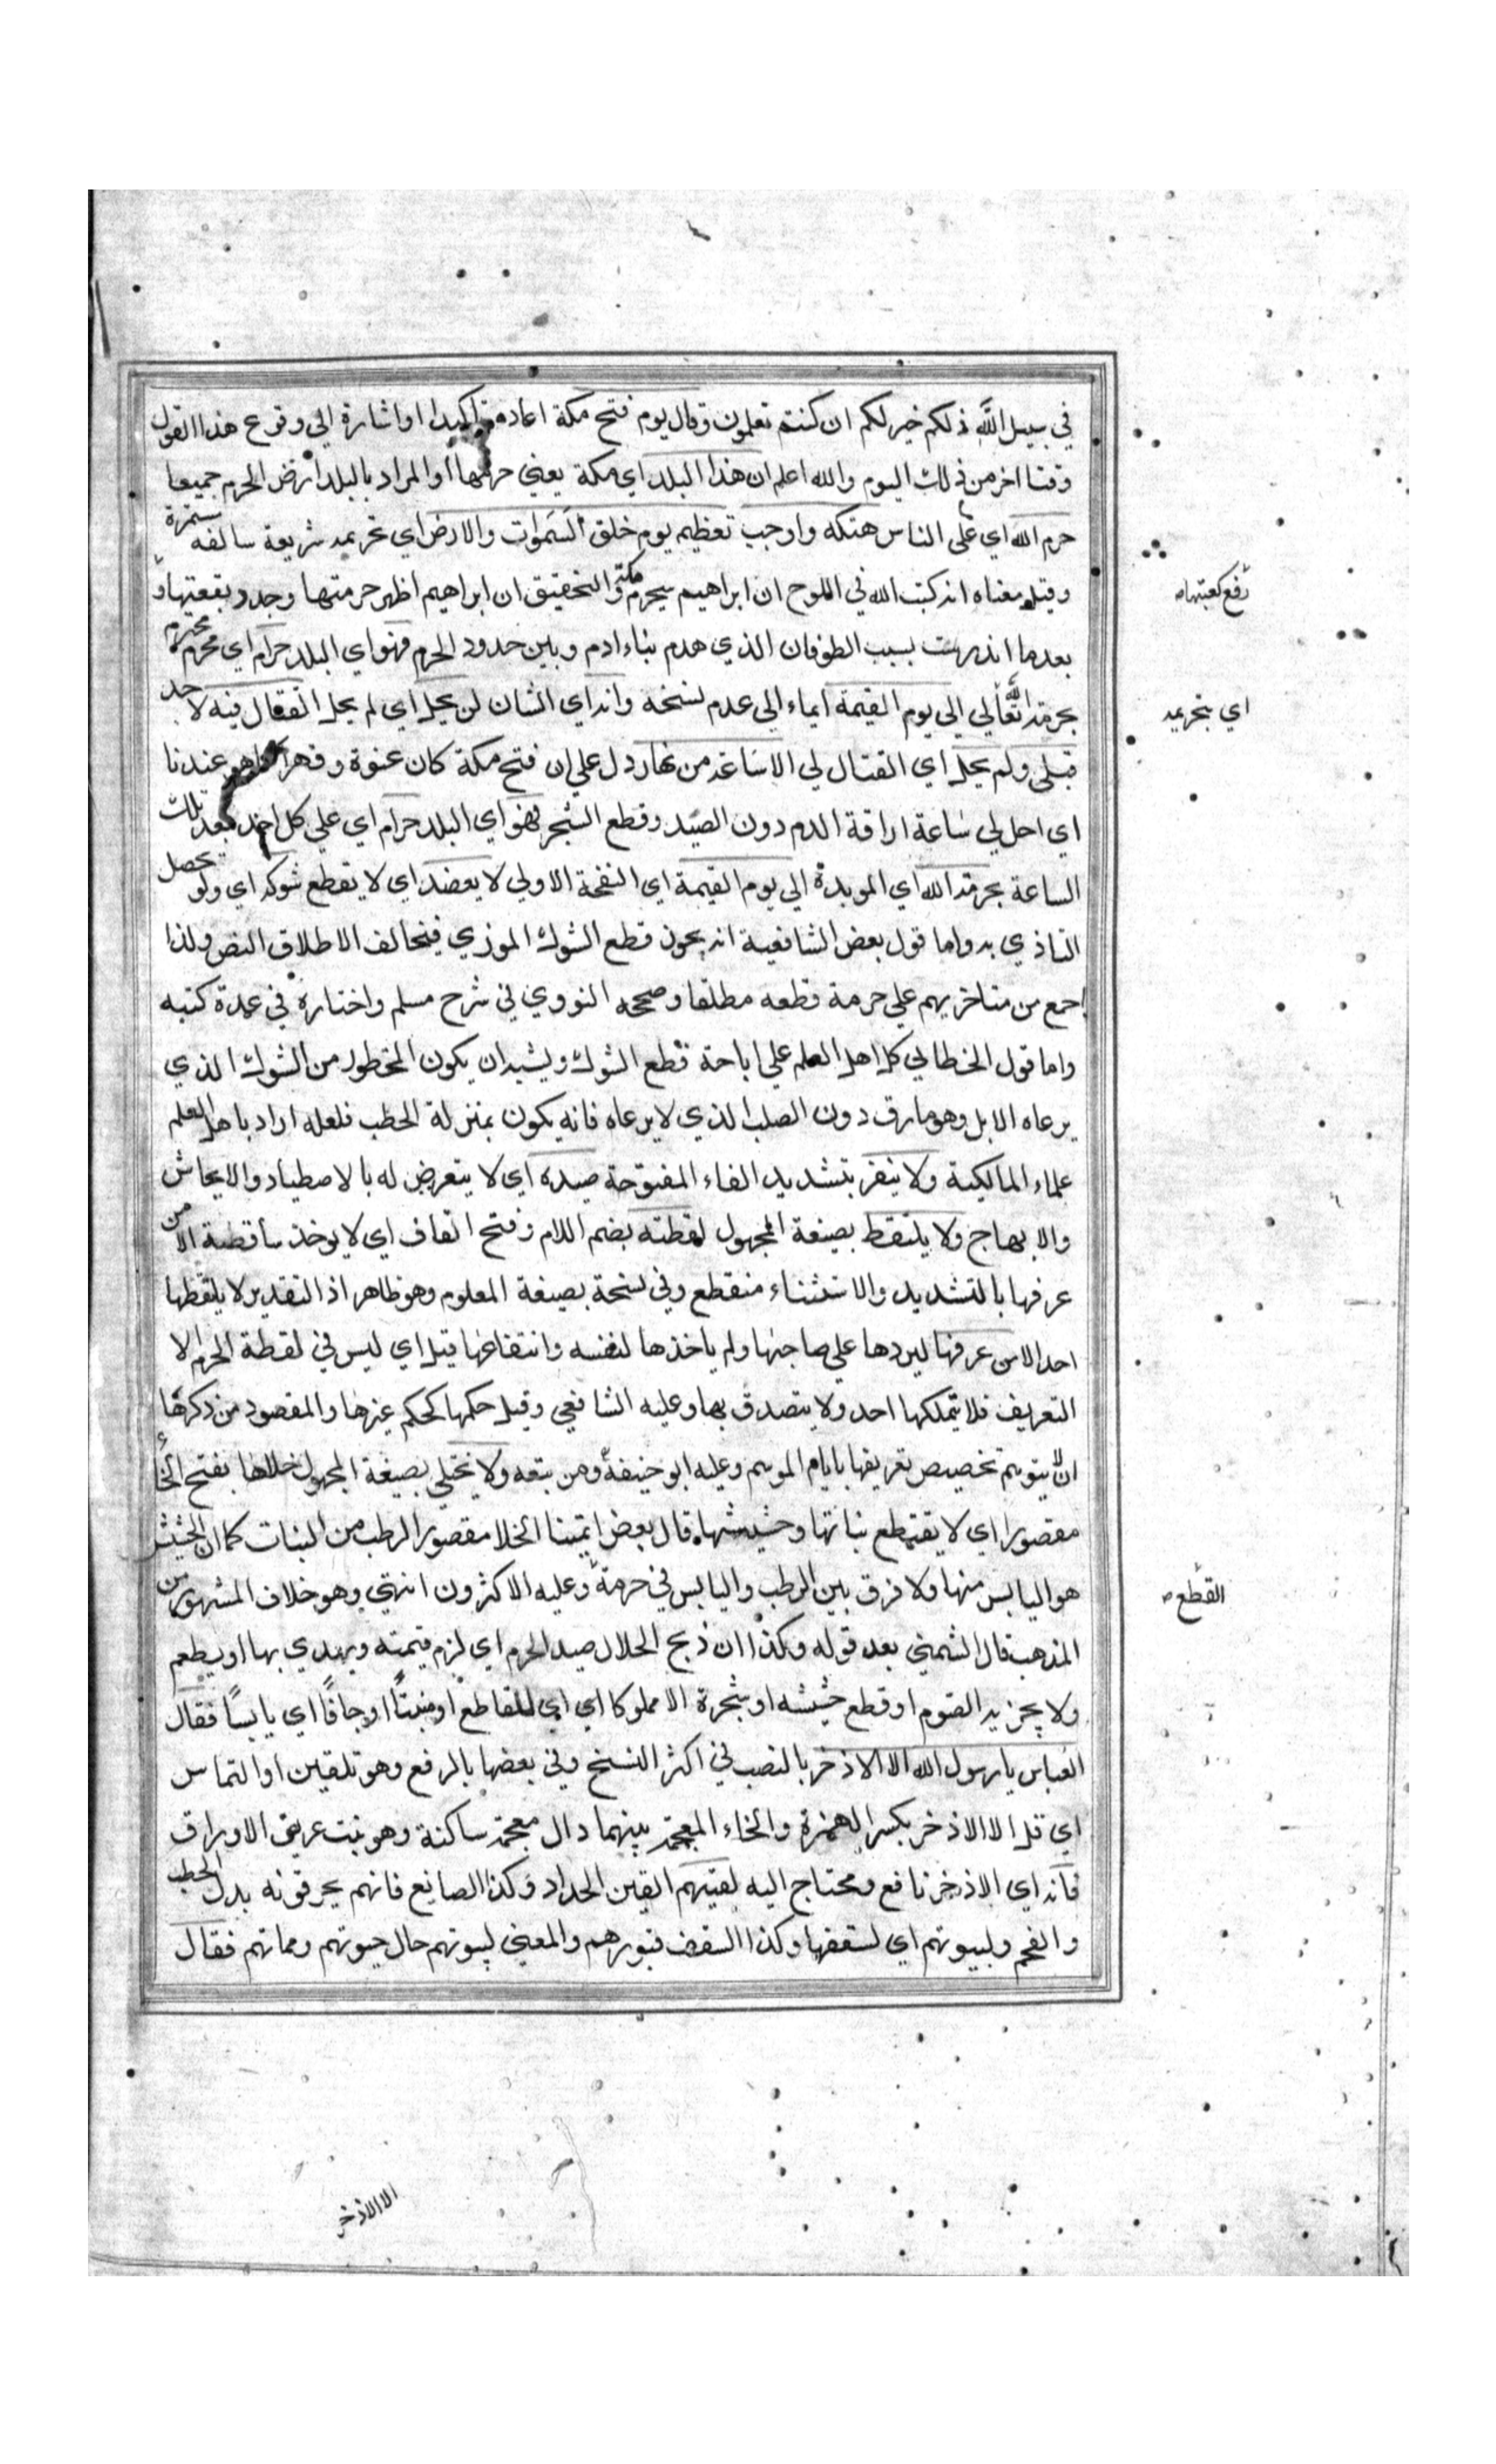 في سبيل الله ذلكم خير لكم ان كنتم تعلمون وقال يوم فتح مكة اعاده تاكيدا او اشارة الي وقوع هذا القول
وقتا اخر من ذلك اليوم والله اعلم ان هذا البلد اي مكة يعني حرمها او المراد بالبلد ارض الحرم جميعا
حرم الله اي علي الناس هتكه واوجب تعظيمه يوم خلق السموات والارض اي تحريمه شريعة سالفة مستمرة
وقيل معناه انه كتب الله في اللوح ان ابراهيم سيحرم مكة والتحقيق ان ابراهيم اظهر حرمتها وجدد بقعتها و
رفع كعبتها
بعد ما اندرست بسبب الطوفان الذي هدم بناء ادم وبين حدود الحرم فهو اي البلد حرام اي محرم محترم
بحرمة الله تعالي الي يوم القيمة ايماء الي عدم نسخه وانه اي الشان لن يحل اي لم يحل القتال فيه لاحد
اي بتحريمه
قبلي ولم يحل اي القتال لي الا ساعة من نهار دل علي ان فتح مكة كان عنوة وقهرا كما هو عندنا
اي احل لي ساعة اراقة الدم دون الصيد وقطع الشجر فهو اي البلد حرام اي علي كل احد بعد تلك
الساعة بحرمة الله اي الموبدة الي يوم القيمة اي النفخة الاولي لا يعضد اي لا يقطع شوكه اي ولو يحصل
التاذي به واما قول بعض الشافعية انه يجوز قطع الشوك الموذي فيخالف الاطلاق النص ولذا
اجمع من متاخريهم علي حرمة قطعه مطلقا وصححه النووي في شرح مسلم واختاره في عمدة كتبه
واما قول الخطابي كل اهل العلم علي اباحة قطع الشوك ويشبه ان يكون المحظور من الشوك الذي
يرعاه الابل وهو ما رق دون الصلب الذي لا يرعاه فانه يكون بمنزلة الحطب فلعله اراد باهل العلم
علماء المالكية ولا ينفر بتشديد الفاء المفتوحة صيده اي لا يتعرض له بالاصطياد والايحاش
والايهاج ولا يلتقط بصيغة المجهول لقطته بضم اللام وفتح القاف اي لا يوخذ ساقطته الا من
عرفها بالتشديد والاستثناء منقطع وفي نسخة بصيغة المعلوم وهو ظاهر اذ التقدير لا يلتقطها
احد الا من عرفها ليردها علي صاحبها ولم ياخذها لنفسه وانتفاعها قيل اي ليس في لقطة الحرم الا
التعريف فلا يتملكها احد ولا يتصدق بها وعليه الشافعي وقيل حكمها كحكم غيرها والمقصود من ذكرها
ان لا يتوهم تخصيص تعريفها بايام الموسم وعليه ابو حنيفة ومن تبعه ولا يختلي بصيغة المجهول خلاها بفتح الخاء
مقصورا اي لا يقتطع نباتها وحشيشها قال بعض ايمتنا الخلا مقصور الرطب من النبات كما ان الحشيش
هو اليابس منها ولا فرق بين الرطب واليابس في حرمة وعليه الاكثرون انتهي وهو خلاف المشهور من
القطع
المذهب قال الشمني بعد قوله وكذا ان ذبح الحلال صيد الحرم اي لزم قيمته ويهدي بها او يطعم
ولا يجزيه الصوم او قطع حشيشه او شجرة الا مملوكا اي اي للقاطع او منبتا او جافا اي يابسا فقال
العباس يا رسول الله الا الاذخر بالنصب في اكثر النسخ وفي بعضها بالرفع وهو تلقين او التماس
اي قل الا الاذخر بكسر الهمزة والخاء المعجمة بينهما دال معجمة ساكنة وهو نبت عريض الاوراق
فانه اي الاذخر نافع ومحتاج اليه لقينهم القين الحداد وكذا الصايغ فانهم يحرقونه بدل الحطب
والفحم ولبيوتهم اي لسقفها وكذا السقف قبورهم والمعني لبيوتهم حال حيوتهم ومماتهم فقال
الا الاذخر